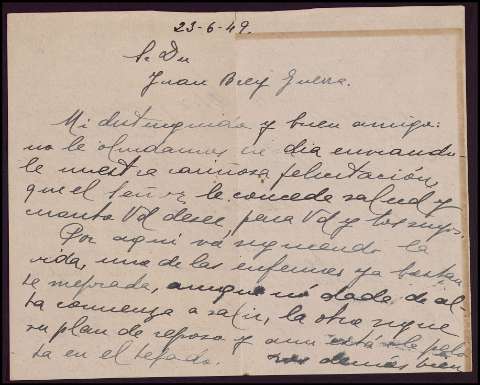 23-6-49.
Sr Dn
Juan Bely Guerra.
Mi distinguido y buen amigo:
no le olvidamos su dia enviando-
le nuestra cariñosa felicitación,
que el Señor le conceda salud y
cuanto Vd desee para Vd y los suyos.
Por aqui vá siguiendo la
vida, una de las enfermas ya bastan
te mejorada, aunque no dada de al-
ta comienza a salir, la otra sigue
su plan de reposo y aun esta la pelo
ta en el tejado. Los demás bien